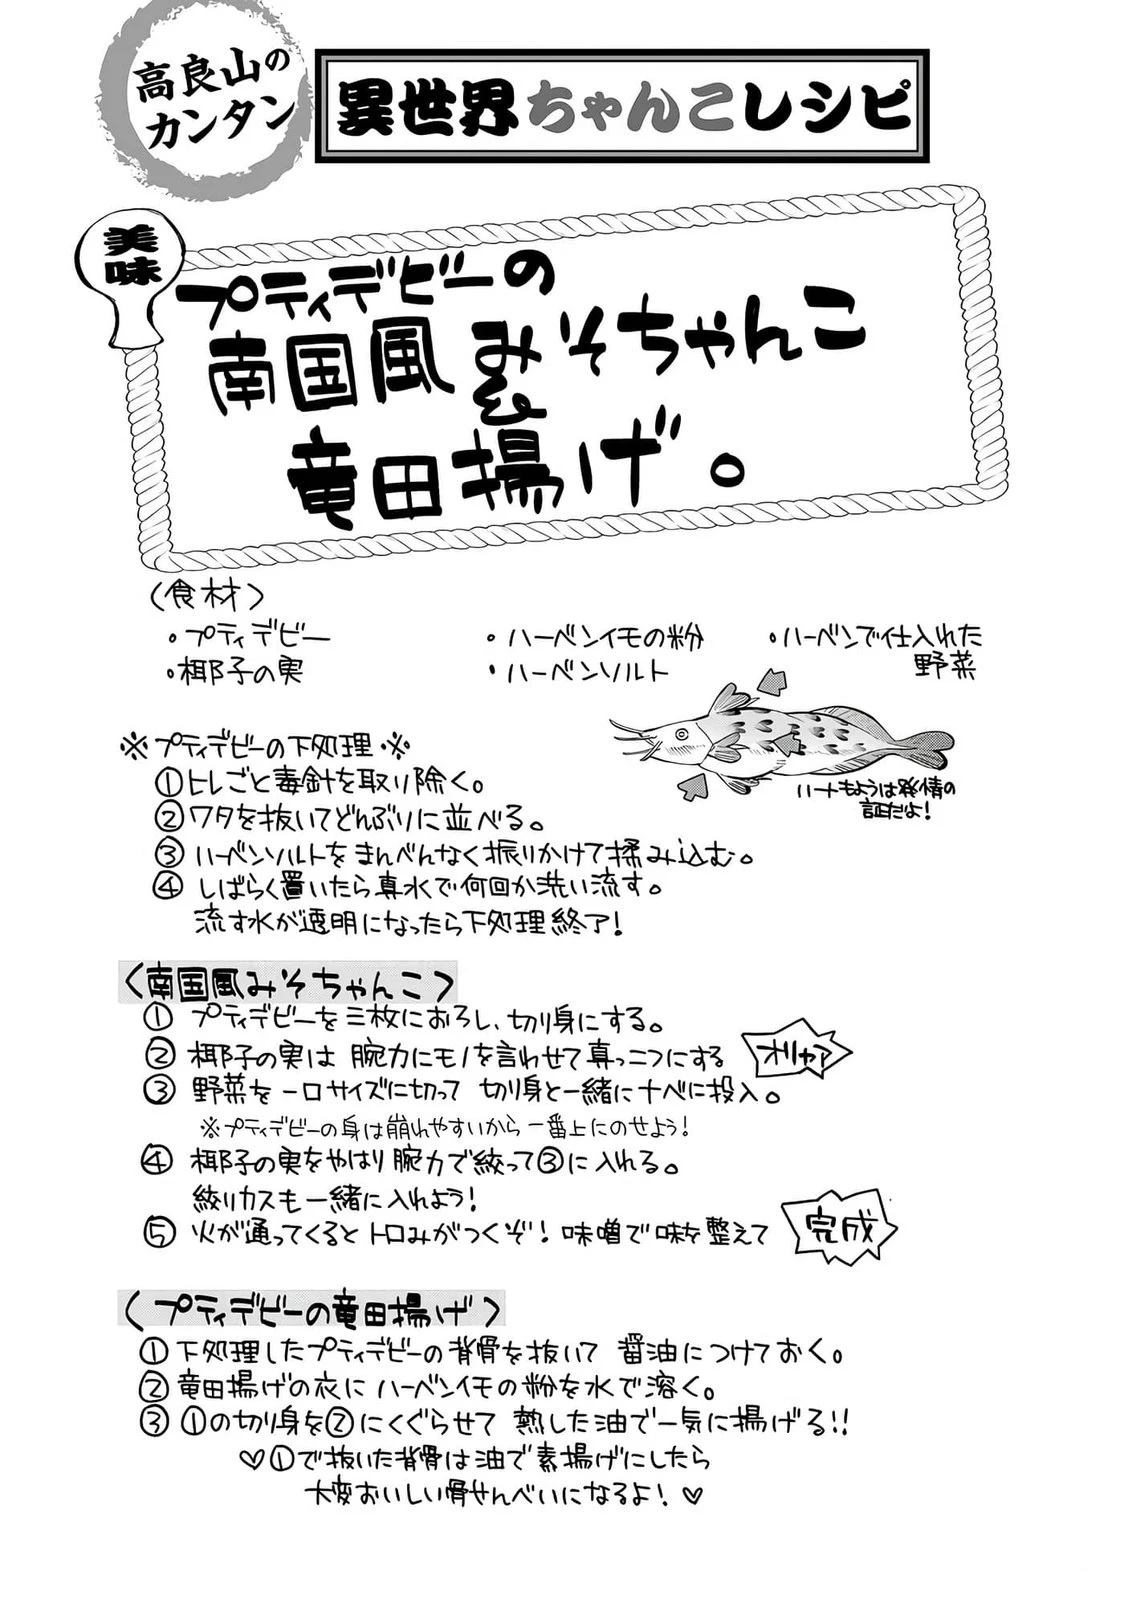 高良山の
カンタン
異世界ちゃんこレシピ
美味
プティデビーの
南国風みそちゃんこ
&
竜田揚げ。
〈食材〉
・プティデビー
・ハーベンイモの粉
・ハーベンで仕入れた
野菜
・椰子の実
・ハーベンソルト
※プティデビーの下処理※
①ヒレごと毒針を取り除く。
②ワタを抜いてどんぶりに並べる。
③ハーベンソルトをまんべんなく振りかけて揉み込む。
④しばらく置いたら真水で何回か洗い流す。
流す水が透明になったら下処理終了!
ハートもようは発情の
証だよ!
〈南国風みそちゃんこ〉
①プティデビーを三枚におろし、切り身にする。
②椰子の実は腕力にモノを言わせて真っ二つにする
オリャア
③野菜を一口サイズに切って 切り身と一緒にナベに投入。
※プティデビーの身は崩れやすいから一番上にのせよう!
④椰子の実をやはり腕力で絞って③に入れる。
絞りカスも一緒に入れよう!
⑤火が通ってくるとトロみがつくぞ!味噌で味を整えて
完成
〈プティデビーの竜田揚げ〉
①下処理したプティデビーの背骨を抜いて 醤油につけておく。
②竜田揚げの衣にハーベンイモの粉を水で溶く。
③①の切り身を②にくぐらせて 熱した油で一気に揚げる!!
♡①で抜いた背骨は油で素揚げにしたら
大変おいしい骨せんべいになるよ!♡